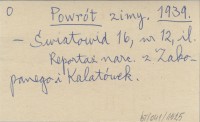 O Powrót zimy. 1939.
- Światowid 16, nr 12, il.
Reportaż narc. z Zako-
panego i Kalatówek.